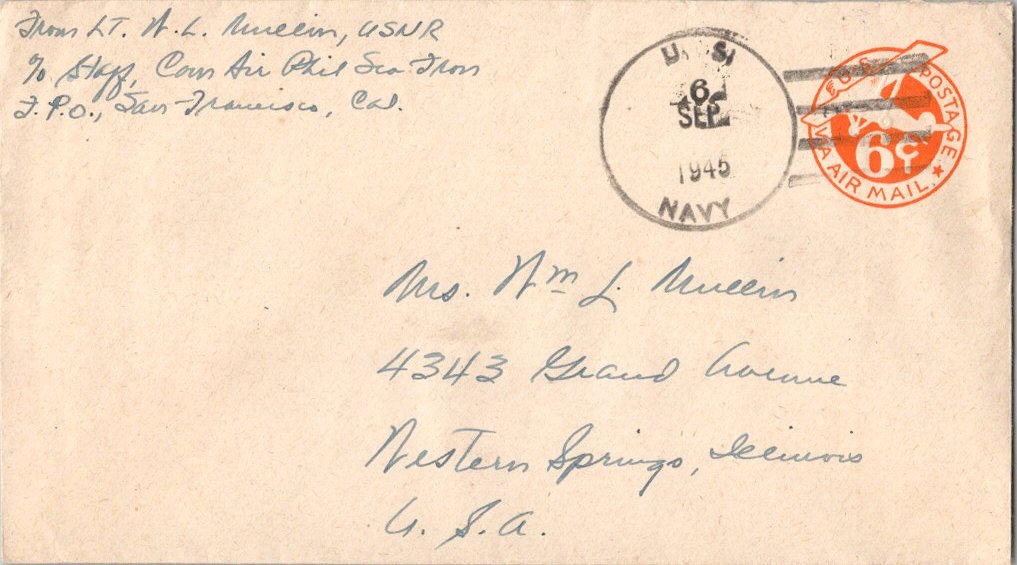 From Lt. W. L. Mullin, USNR
c/o Staff, Com Air Phil Sea Fron
F.P.O., San Francisco, Cal.
U. S.
6
SEP
1945
NAVY
U.S. POSTAGE
6¢
VIA AIR MAIL
Mrs. Wm L. Mullin
4343 Grand Avenue
Western Springs, Illinois
U. S. A.